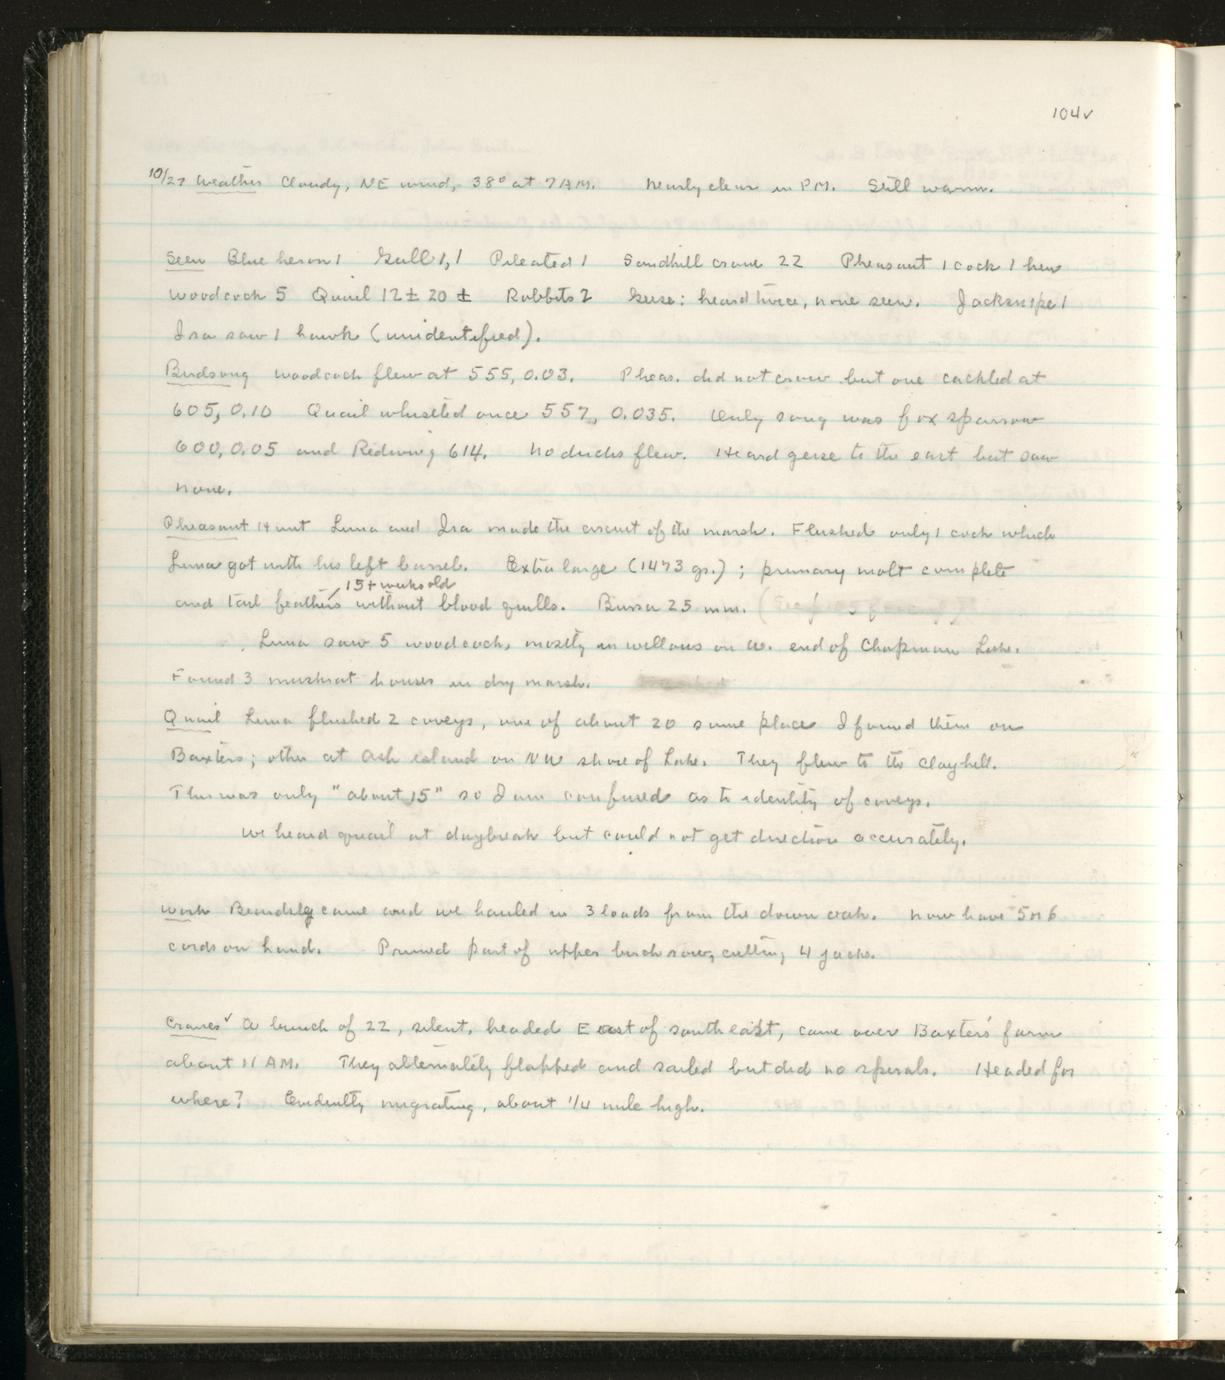 104v
10/27 Weather Cloudy, NE wind, 38° at 7 AM. Nearly clear in PM. Still warm.
Seen Blue heron 1 Gull 1, 1 Pileated 1 Sandhill crane 22 Pheasant 1 cock 1 hen
Woodcock 5 Quail 12± 20± Rabbits 2 Geese: heard twice, none seen. Jacksnipe 1
Ira saw 1 hawk (unidentified).
Birdsong Woodcock flew at 555, 0.03. Pheas. did not crow but one cackled at
605, 0.10 Quail whistled once 557, 0.035. Only song was fox sparrow
600, 0.05 and Redwing 614. No ducks flew. Heard geese to the east but saw
none.
Pheasant Hunt Luna and Ira made the circuit of the marsh. Flushed only 1 cock which
Luna got with his left barrel. Extra large (1473 gs.); primary molt complete
15+ weeks old
and tail feathers without blood quills. Bursa 25 mm.
Luna saw 5 woodcock, mostly in willows on W. end of Chapman Lake.
Found 3 muskrat houses in dry marsh.
Quail Luna flushed 2 coveys, one of about 20 same place I found them on
Baxters; other at Ash island on NW shore of Lake. They flew to the Clayhill.
This was only "about 15" so I am confused as to identity of coveys.
We heard quail at daybreak but could not get direction accurately.
Work Beardsley came and we hauled in 3 loads from the down oak. Now have 5 or 6
cords on hand. Pruned part of upper birch row, cutting 4 jacks.
Cranes✓ A bunch of 22, silent, headed East of southeast, came over Baxters' farm
about 11 AM. They alternately flapped and sailed but did no spirals. Headed for
where? Evidently migrating, about 1/4 mile high.